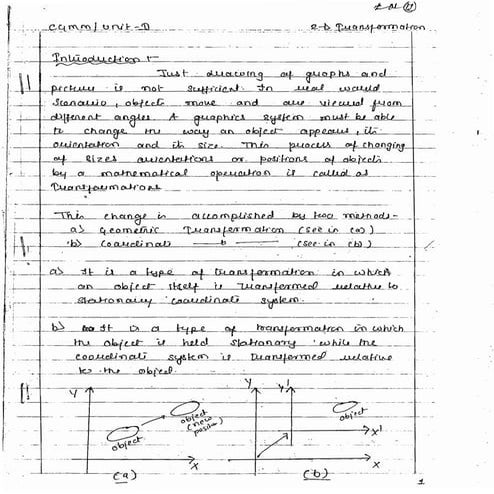 CGMM/Unit-D 2-D Transformation
Introduction :-
Just drawing of graphs and
picture is not sufficient. In real world
scenario, objects move and are viewed from
different angles. A graphics system must be able
to change the way an object appears, its
orientation and its size. This process of changing
of sizes orientations or positions of objects
by a mathematical operation is called as
Transformations
This change is accomplished by two methods-
a) Geometric Transformation (see in (a))
b) Coordinate —— " —— (see in (b))
a) It is a type of transformation in which
an object itself is transformed relative to
stationary coordinate system.
b) It is a type of transformation in which
the object is held stationary while the
coordinate system is transformed relative
to the object.
Y Y Y'
object object (new position) object
X X' X
(a) (b)
1